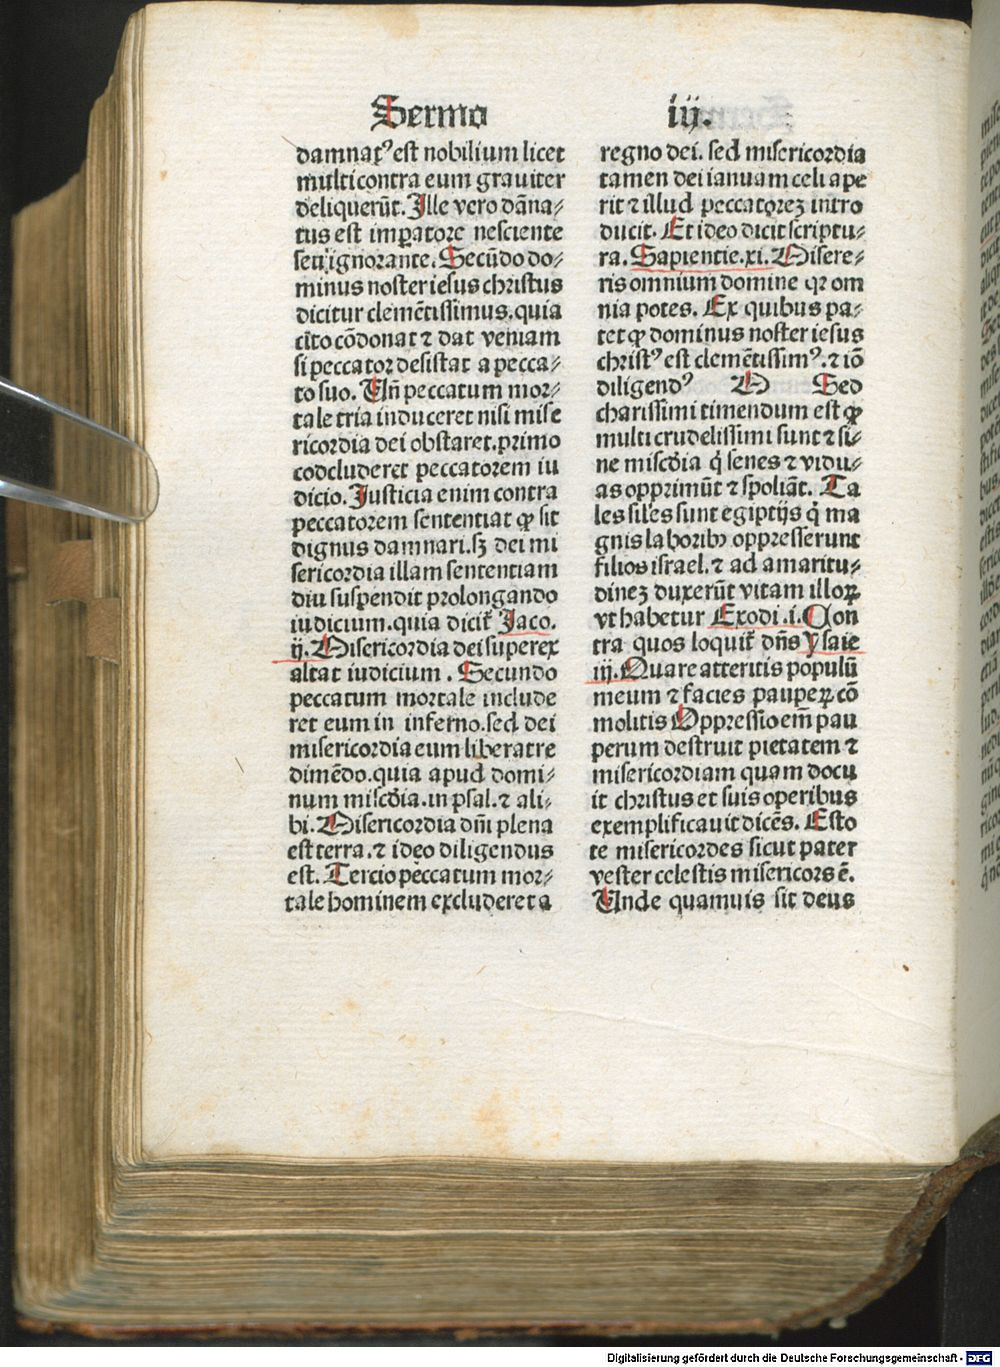 Sermo iij.
damnatꝰ est nobilium licet
multi contra eum grauiter
deliquerūt. Ille vero dāna⸗
tus est imꝑatore nesciente
seu ignorante. Secūdo do⸗
minus noster iesus christus
dicitur clemētissimus. quia
cito cōdonat ⁊ dat veniam
si peccator desistat a pecca⸗
to suo. Vn̄ peccatum mor⸗
tale tria induceret nisi mise
ricordia dei obstaret. primo
codcluderet peccatorem iu
dicio. Justicia enim contra
peccatorem sententiat ꝙ sit
dignus damnari. sꝫ dei mi
sericordia illam sententiam
diu suspendit prolongando
iudicium. quia dicit᷑ Jaco.
ij. Misericordia dei superex
altat iudicium. Secundo
peccatum mortale include
ret eum in inferno. sed dei
misericordia eum liberat re
dimēdo. quia apud domi⸗
num misc̄dia. in psal. ⁊ ali⸗
bi. Misericordia dn̄i plena
est terra. ⁊ ideo diligendus
est. Tercio peccatum mor⸗
tale hominem excluderet a
regno dei. sed misericordia
tamen dei ianuam celi ape
rit ⁊ illud peccatoreꝫ intro
ducit. Et ideo dicit scriptu⸗
ra. Sapientie. xi. Misere⸗
ris omnium domine qꝛ om
nia potes. Ex quibus pa⸗
tet ꝙ dominus noster iesus
christꝰ est clemētissimꝰ. ⁊ iō
diligendꝰ O Sed
charissimi timendum est ꝙ
multi crudelissimi sunt ⁊ si⸗
ne misc̄dia q̇ senes ⁊ vidu⸗
as opprimūt ⁊ spoliāt. Ta
les sil̄es sunt egiptijs q̇ ma
gnis laboribꝰ oppresserunt
filios israel. ⁊ ad amaritu⸗
dineꝫ duxerūt vitam illoꝝ
vt habetur Exodi. i. Con
tra quos loquit᷑ dn̄s Ysaie
iij. Quare atteritis populū
meum ⁊ facies pauperꝝ cō
molitis Oppressio em̄ pau
perum destruit pietatem ⁊
misericordiam quam docu
it christus et suis operibus
exemplificauit dicēs. Esto
te misericordes sicut pater
vester celestis misericors ē.
Vnde quamuis sit deus
Digitalisierung gefördert durch die Deutsche Forschungsgemeinschaft - DFG